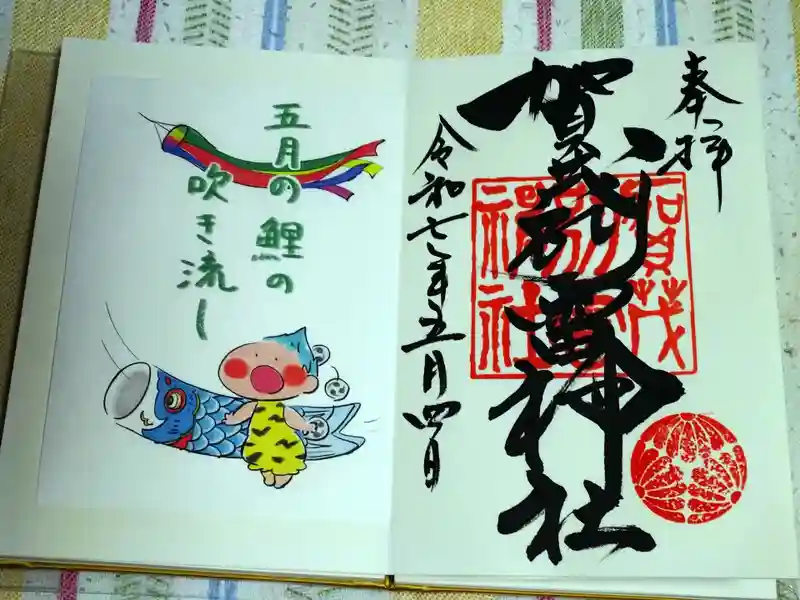 奉拝
賀茂別雷神社
令和七年五月四日
賀茂
別雷
神社
五月の鯉の
吹き流し